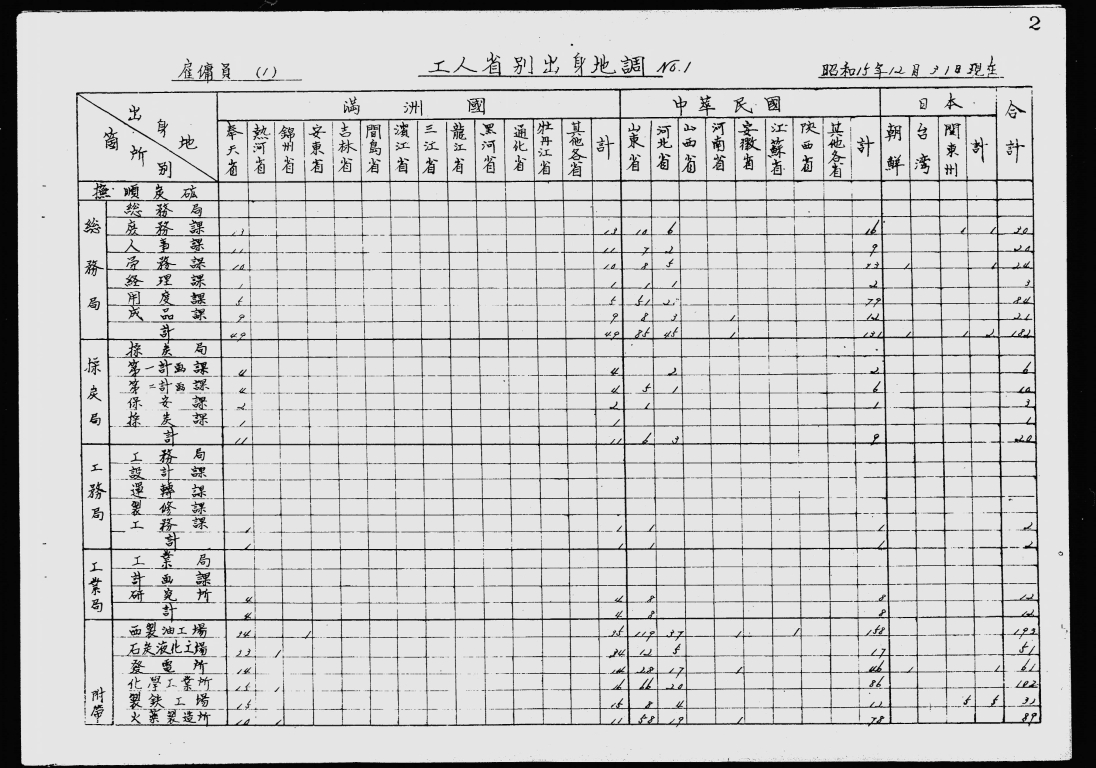 2
雇傭員 (1)
工人省別出身地調 No.1
昭和15年12月31日現在
出身地 箇所別 満洲國 中華民國 日本 合計
奉天省 熱河省 錦州省 安東省 吉林省 間島省 濱江省 三江省 龍江省 黒河省 通化省 牡丹江省 其他各省 計 山東省 河北省 山西省 河南省 安徽省 江蘇省 陝西省 其他各省 計 朝鮮 台湾 関東州 計
撫順炭砿
総務局
総務局
庶務課 13 13 10 6 16 1 1 30
人事課 11 11 7 2 9 20
労務課 10 10 8 5 1 1 24
経理課 1 1 1 1 2 3
用度課 5 5 51 79 84
成品課 9 9 8 3 1 12 21
計 49 49 85 45 1 131 1 1 2 182
採炭局
採炭局
第一計画課 4 4 2 2 6
第二計画課 4 4 5 1 6 10
保安課 2 2 1 1 3
採炭課 1 1 1
計 11 11 6 3 9 20
工務局
工務局
設計課
運轉課
製修課
工務課 1 1 1 1 2
計 1 1 1 1 2
工業局
工業局
計画課
研究所 4 4 8 8 12
計 4 4 8 8 12
附帶
西製油工場 34 1 35 119 37 1 1 158 193
石炭液化工場 1 34 12 5 17 51
發電所 14 14 28 17 1 46 1 1 61
化學工業所 15 1 16 66 20 86 102
製鉄工場 15 15 8 4 12 5 5 32
火薬製造所 10 1 11 58 19 1 78 89